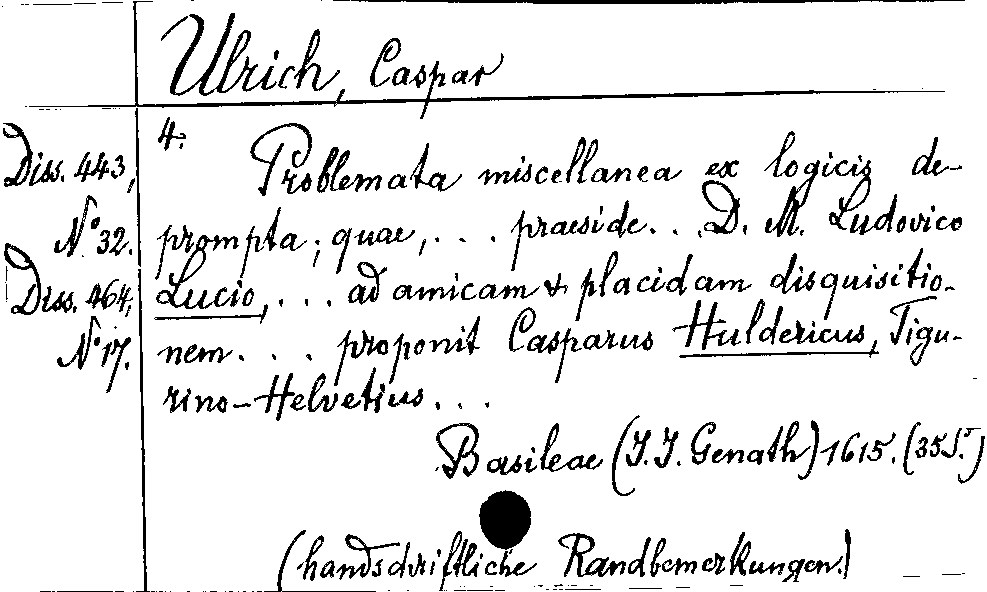 Ulrich, Caspar
4.
Diss. 443,
N° 32.
Diss. 464,
N° 17.
Problemata miscellanea ex logicis de-
prompta; quae, ... praeside.. D. M. Ludovico
Lucio, ... ad amicam & placidam disquisitio-
nem ... proponit Casparus Huldericus, Tigu-
rino-Helvetius ...
Basileae (J. J. Genath) 1615. (35 S.)
(handschriftliche Randbemerkungen.)